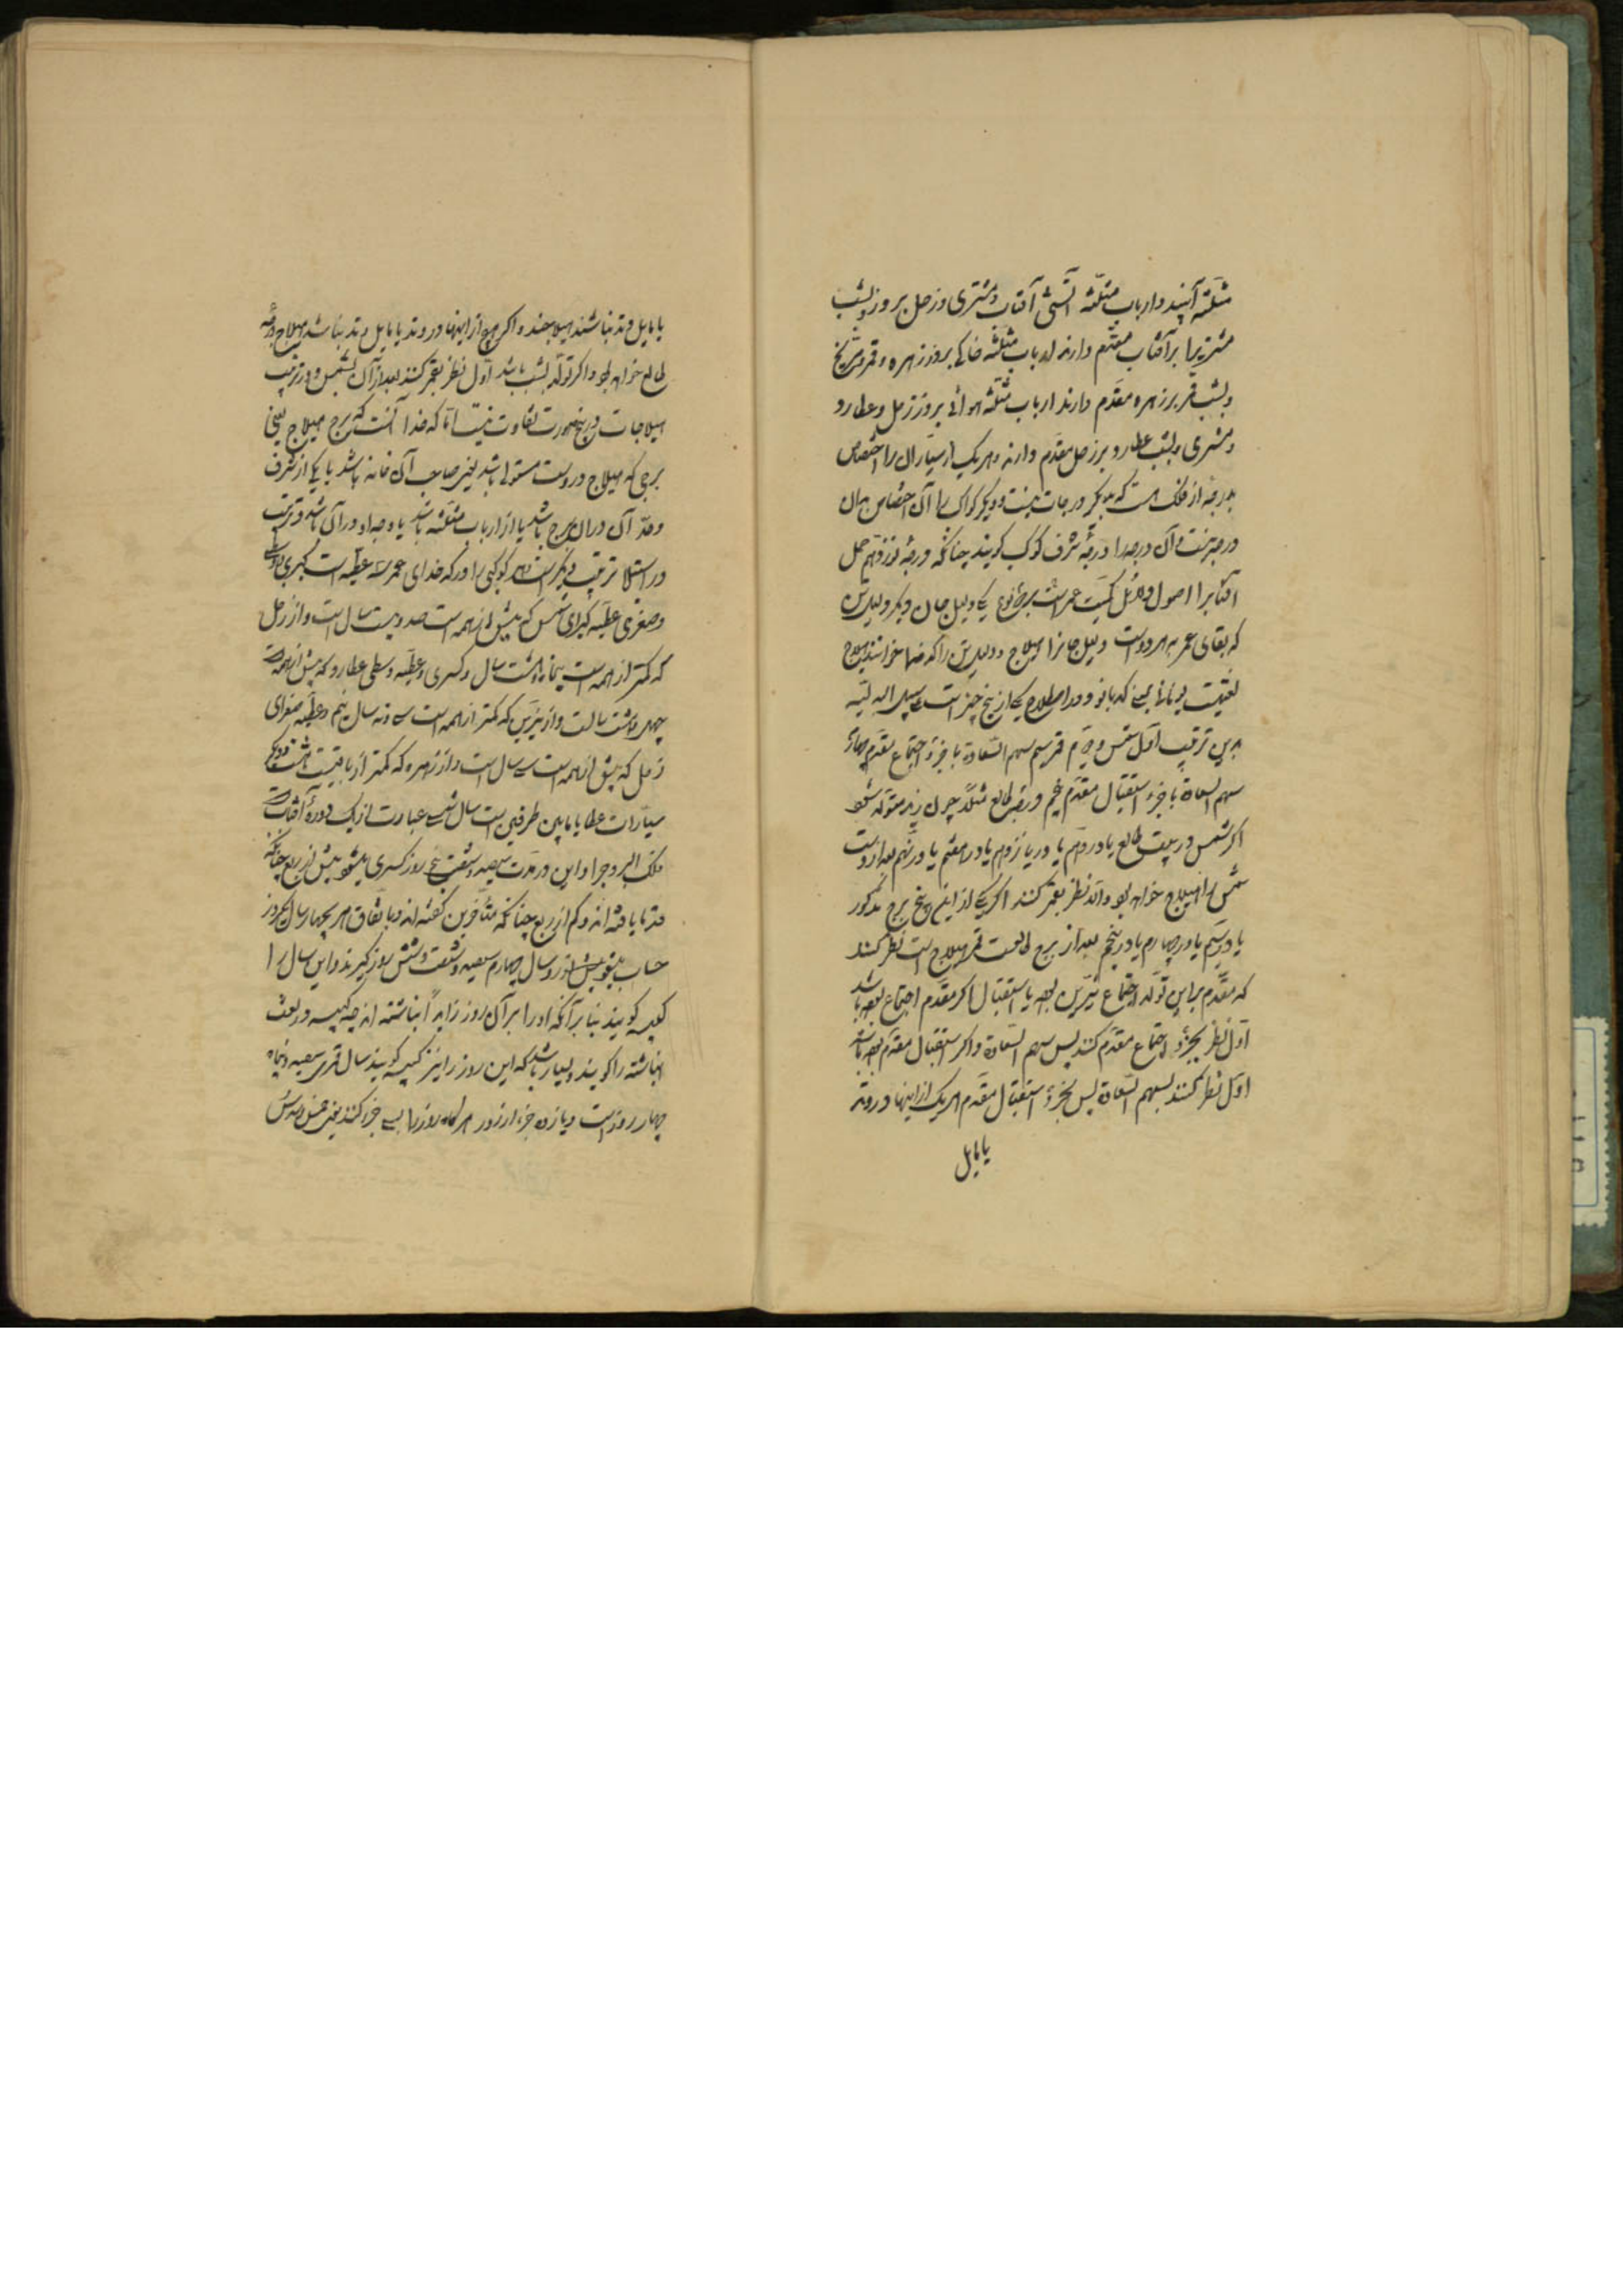 مثلثه آبیند و ارباب مثلثه آتشی آفتاب و مشتری و زحل بروز و بشب
مشتریرا بر آفتاب مقدم دارند ارباب مثلثه خاکی بروز زهره و قمر و مریخ
و بشب قمر بر زهره مقدم دارند ارباب مثلثه هوائی بروز زحل و عطارد
و مشتری و بشب عطارد بر زحل مقدم دارند و هر یک از سیاران را اختصاص
بدرجهٔ از فلک هست که بدیگر درجات نیست و دیگر کواکب را آن اختصاص بدان
درجه نیست و آن درجه را درجهٔ شرف کوکب گویند چنانکه درجهٔ نوزدهم حمل
آفتابرا اصول دلائل کمیت عمر است بر دو نوع یکی دلیل جان و دیگر دلیل تن
که بقای عمر بهر دو است دلیل جانرا هیلاج و دلیل تن را کدخدا خوانند هیلاج
لغتیست یونانی بمعنی کدبانو و در اصطلاح یکی از پنج چیز است علی سبیل البدلیه
بدین ترتیب اول شمس دویم قمر سیم سهم السعادة یا جزء اجتماع مقدم چهارم
سهم السعادة یا جزء استقبال مقدم پنجم درجهٔ طالع مثلا چون زید متولد شود
اگر شمس در بیت طالع یا در دهم یا در یازدهم یا در هفتم یا در نهم بعد از اوست
شمس را هیلاج خواهد بود و الا نظر بقمر کنند اگر یکی از این پنج برج مذکور
یا در سیم یا در چهارم یا در پنجم بعد از برج طالعست قمر هیلاج است نظر کنند
که مقدم بر این تولد اجتماع نیرین بوده یا استقبال اگر مقدم اجتماع بوده باشد
اول نظر بجزء اجتماع مقدم کنند پس سهم السعادة و اگر استقبال مقدم بوده باشد
اول نظر کنند بسهم السعادة پس بجزء استقبال مقدم هر یک از اینها در وتد
یا مایل
یا مایل وتد نباشند هیلاجند و اگر هیچ از اینها در وتد یا مایل وتد نباشد هیلاج درجهٔ
طالع خواهد بود و اگر تولد بشب باشد اول نظر بقمر کنند بعد از آن بشمس و در ترتیب
هیلاجات در پنج صورت تفاوت نیست اما کدخدا آنست که بر برج هیلاج یعنی
برجی که هیلاج دروست مستولی باشد یعنی صاحب آن خانه باشد یا یکی از شرف
و حد آن در آن برج باشد یا از ارباب مثلثه باشد یا وجه او در آن باشد و ترتیب
در استیلا ترتیب دیگر است و هر کوکبی را در کدخدای عمر سه عطیه است کبری و وسطی
و صغری عطیه کبرای شمس که بیش از همه است صد و بیست سال است و از زحل
که کمتر از همه است پنجاه و هشت سال و کسری و عطیه وسطی عطارد که بیش از همه است
چهل و هشت سالست و از نیرین که کمتر از همه است سی و نه سال و نیم و عطیه صغرای
زحل که بیش از همه است سی سال است و از زهره که کمتر از باقیست هشت و دیگر
سیارات عطایا مابین طرفین است سال شمسی عبارت از یک دورهٔ آفتاب است
فلک البروج را و این در مدت سیصد و شصت و پنج روز و کسری میشود بیش از ربع چنانکه
قدما یافته اند و کم از ربع چنانکه متأخرین گفته اند و باتفاق هر چهار سال یکروز
حساب بیش آورد و سال چهارم سیصد و شصت و شش روز گیرند و این سال را
کبیسه گویند بنا بر آنکه او را بر آن روز زاید انباشته اند چه کبیسه در لغت
انباشته را گویند و بسیار باشد که این روز را نیز کبیسه گویند سال قمری سیصد و پنجاه
چهار روز است و یازده جزء از روز هر گاه روز را بسی جزء کنند یعنی خمس و سدس